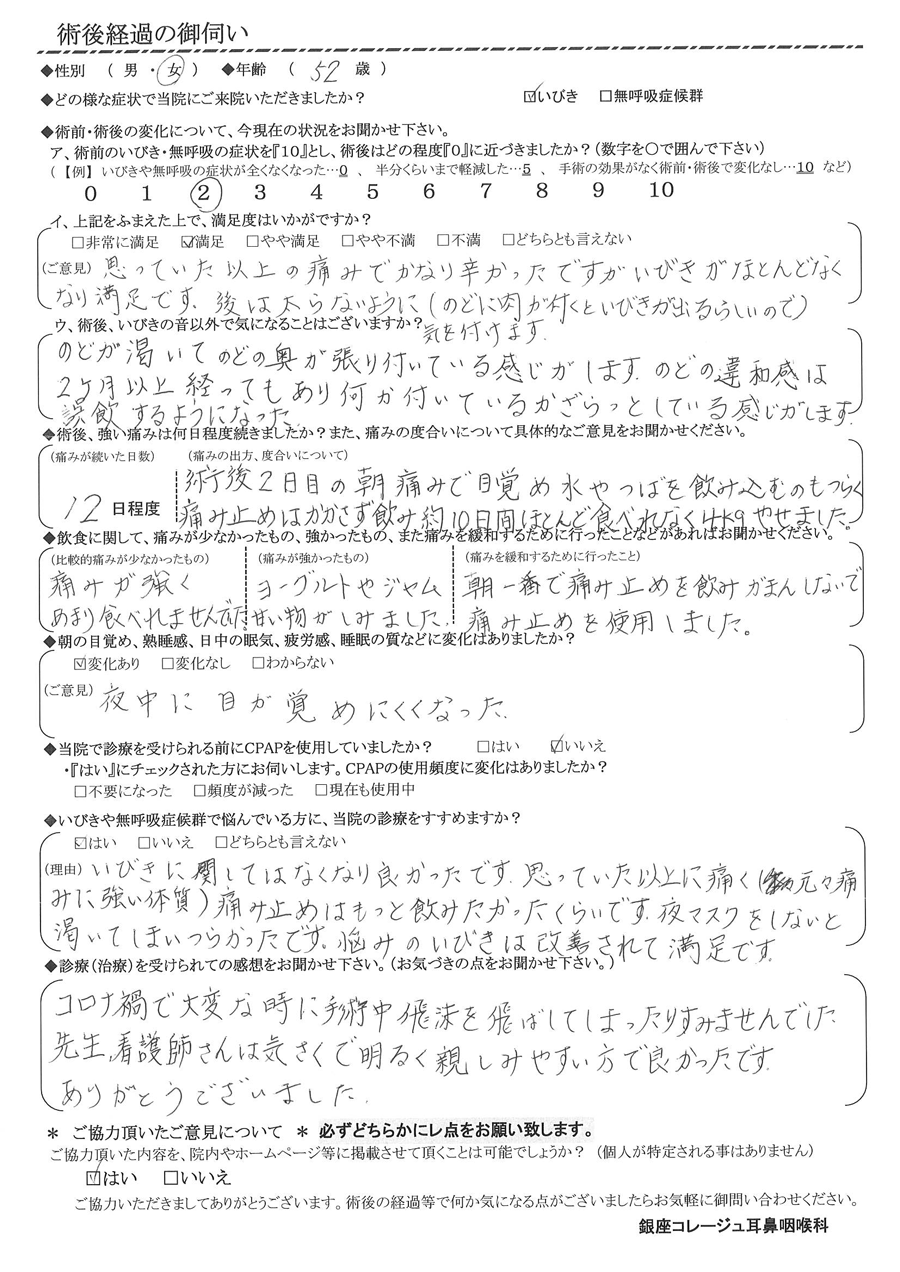 術後経過の御伺い
◆性別 （ 男 ・ 女 ） ◆年齢 （ 52 歳 ）
◆どの様な症状で当院にご来院いただきましたか？ ☑いびき □無呼吸症候群
◆術前・術後の変化について、今現在の状況をお聞かせ下さい。
ア、術前のいびき・無呼吸の症状を『10』とし、術後はどの程度『0』に近づきましたか？（数字を〇で囲んで下さい）
（【例】いびきや無呼吸の症状が全くなくなった…0 、 半分くらいまで軽減した…5 、 手術の効果がなく術前・術後で変化なし…10 など）
0 1 2 3 4 5 6 7 8 9 10
イ、上記をふまえた上で、満足度はいかがですか？
□非常に満足 ☑満足 □やや満足 □やや不満 □不満 □どちらとも言えない
（ご意見） 思っていた以上の痛みでかなり辛かったですがいびきがほとんどなく
なり満足です. 後は太らないように（のどに肉が付くといびきが出るらしいので）
気を付けます.
ウ、術後、いびきの音以外で気になることはございますか？
のどが渇いてのどの奥が張り付いている感じがします. のどの違和感は
2ヶ月以上経ってもあり何か付いているかざらっとしている感じがします.
誤飲するようになった.
◆術後、強い痛みは何日程度続きましたか？また、痛みの度合いについて具体的なご意見をお聞かせください。
（痛みが続いた日数） （痛みの出方、度合いについて）
12 日程度
術后後2日目の朝痛みで目覚め水やつばを飲み込むのもつらく
痛み止めはかかさず飲み約10日間ほとんど食べれなく4kgやせました.
◆飲食に関して、痛みが少なかったもの、強かったもの、また痛みを緩和するために行ったことなどがあればお聞かせください。
（比較的痛みが少なかったもの） （痛みが強かったもの） （痛みを緩和するために行ったこと）
痛みが強く ヨーグルトやジャム 朝一番で痛み止めを飲みがまんしないで
あまり食べれませんでした 甘い物がしみました. 痛み止めを使用しました。
◆朝の目覚め、熟睡感、日中の眠気、疲労感、睡眠の質などに変化はありましたか？
☑変化あり □変化なし □わからない
（ご意見） 夜中に目が覚めにくくなった.
◆当院で診療を受けられる前にCPAPを使用していましたか？ □はい ☑いいえ
・『はい』にチェックされた方にお伺いします。CPAPの使用頻度に変化はありましたか？
□不要になった □頻度が減った □現在も使用中
◆いびきや無呼吸症候群で悩んでいる方に、当院の診療をすすめますか？
☑はい □いいえ □どちらとも言えない
（理由） いびきに関してはなくなり良かったです. 思っていた以上に痛く（元々痛
みに強い体質）痛み止めはもっと飲みたかったくらいです. 夜マスクをしないと
渇いてしまいつらかったです. 悩みのいびきは改善されて満足です.
◆診療（治療）を受けられての感想をお聞かせ下さい。（お気づきの点をお聞かせ下さい。）
コロナ禍で大変な時に手術中飛沫を飛ばしてしまったりすみませんでした
先生、看護師さんは気さくで明るく親しみやすい方で良かったです.
ありがとうございました.
＊ ご協力頂いたご意見について ＊ 必ずどちらかにレ点をお願い致します。
ご協力頂いた内容を、院内やホームページ等に掲載させて頂くことは可能でしょうか？（個人が特定される事はありません）
☑はい □いいえ
ご協力いただきましてありがとうございます。術後の経過等で何か気になる点がございましたらお気軽に御問い合わせください。
銀座コレージュ耳鼻咽喉科